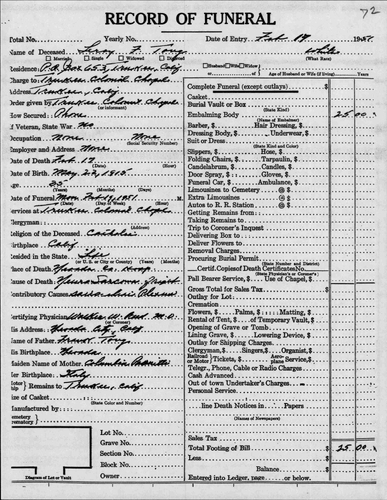 RECORD OF FUNERAL
72
Total No. Yearly No. Date of Entry Feb. 19 1951
Name of Deceased Leroy F. Tong White
Married Single Widowed Divorced
Residence: P.O. Box 653, Truckee, Calif.
Husband Wife Widow
or of Age of Husband or Wife (if living) Years
Charge to Truckee Colonial Chapel
Address Truckee, Calif
Order given by Truckee Colonial Chapel
or informant
How Secured: Phone
If Veteran, State War No
Occupation None None
(Social Security Number)
Employer and Address None
Date of Death Feb. 17
Date of Birth May 22, 1915
Age 35
(Years) (Months) (Days)
Date of Funeral Mon. Feb. 19, 1951
(Date) (Day of Week) (Hour)
Services at Truckee Colonial Chapel
Clergyman
Religion of the Deceased Catholic
Birthplace Calif
Resided in the State Life
(or U. S. or City or County) (Years)
Place of Death Nevada Co. Hosp.
Cause of Death
Contributory Causes
Certifying Physician M.D.
(or Coroner)
His Address: Nevada City, Calif
Name of Father Frank Tong
His Birthplace Nevada
Maiden Name of Mother Columbia
Her Birthplace Italy
Remains to Truckee, Calif
Size of Casket
(State Color and Number)
Manufactured by
Cemetery
Crematory
Lot No.
Grave No.
Section No.
Block No.
Owner
Diagram of Lot or Vault
Complete Funeral (except outlays) $
Casket
Burial Vault or Box
(State Kind)
Embalming Body 25.00
(Name of Embalmer)
Barber, $ Hair Dressing, $
Dressing Body, $ Underwear, $
Suit or Dress
(State Kind and Color)
Slippers, $ Hose, $
Folding Chairs, $ Tarpaulin, $
Candelabrum, $ Candles, $
Door Spray, $ Gloves, $
Funeral Car, $ Ambulance, $
Limousines to Cemetery @ $
Extra Limousines @ $
Autos to R. R. Station @ $
Getting Remains from
Taking Remains to
Trip to Coroner's Inquest
Delivering Box to
Deliver Flowers to
Removal Charges
Procuring Burial Permit
(State Number and District)
Certif. Copies of Death Certificates No.
(State Physician's or Coroner's)
Pall Bearer Service, $ Use of Chapel, $
Gross Total for Sales Tax $
Outlay for Lot
Cremation
Flowers, $ Palms, $ Matting, $
Rental of Tent, $ of Temporary Vault, $
Opening of Grave or Tomb
Lining Grave, $ Lowering Device, $
Outlay for Shipping Charges
Clergyman, $ Singers, $ Organist, $
Railroad or Motor Tickets, $ Aeroplane Service, $
Telegr., Phone, Cable or Radio Charges
Cash Advanced
Out of town Undertaker's Charges
Personal Service
line Death Notices in Papers
(Names of Newspapers)
Sales Tax
Total Footing of Bill $ 25.00
Less
Balance
Entered into Ledger, page or below.